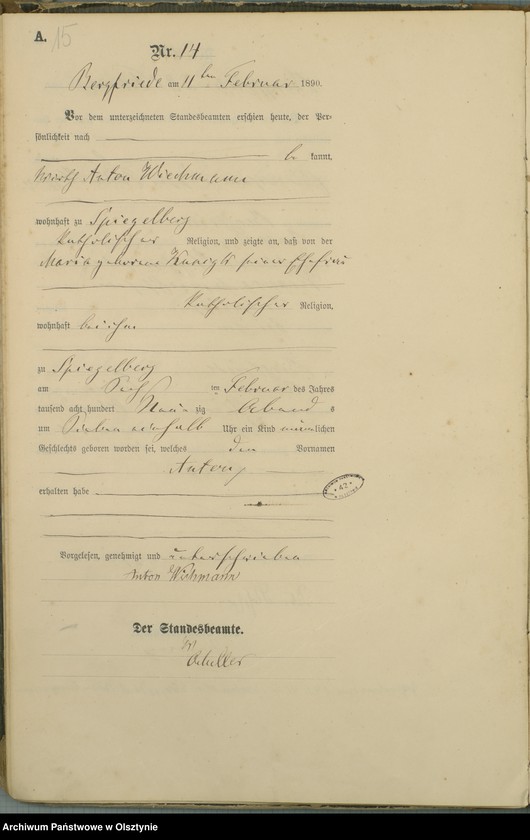 A. 15
Nr. 14
Bergfriede am 11ten Februar 1890.
Vor dem unterzeichneten Standesbeamten erschien heute, der Per-
sönlichkeit nach
be kannt,
Wirth Anton Wiechmann
wohnhaft zu Spiegelberg
katholischer Religion, und zeigte an, daß von der
Maria geborene seiner Ehefrau
katholischer Religion,
wohnhaft bei ihm
zu Spiegelberg
am ten Februar des Jahres
tausend acht hundert Neun zig Abend s
um Sieben einhalb Uhr ein Kind männlichen
Geschlechts geboren worden sei, welches den Vornamen
Anton
erhalten habe
* 42 *
Vorgelesen, genehmigt und unterschrieben
Anton Wichmann
Der Standesbeamte.
Archiwum Państwowe w Olsztynie